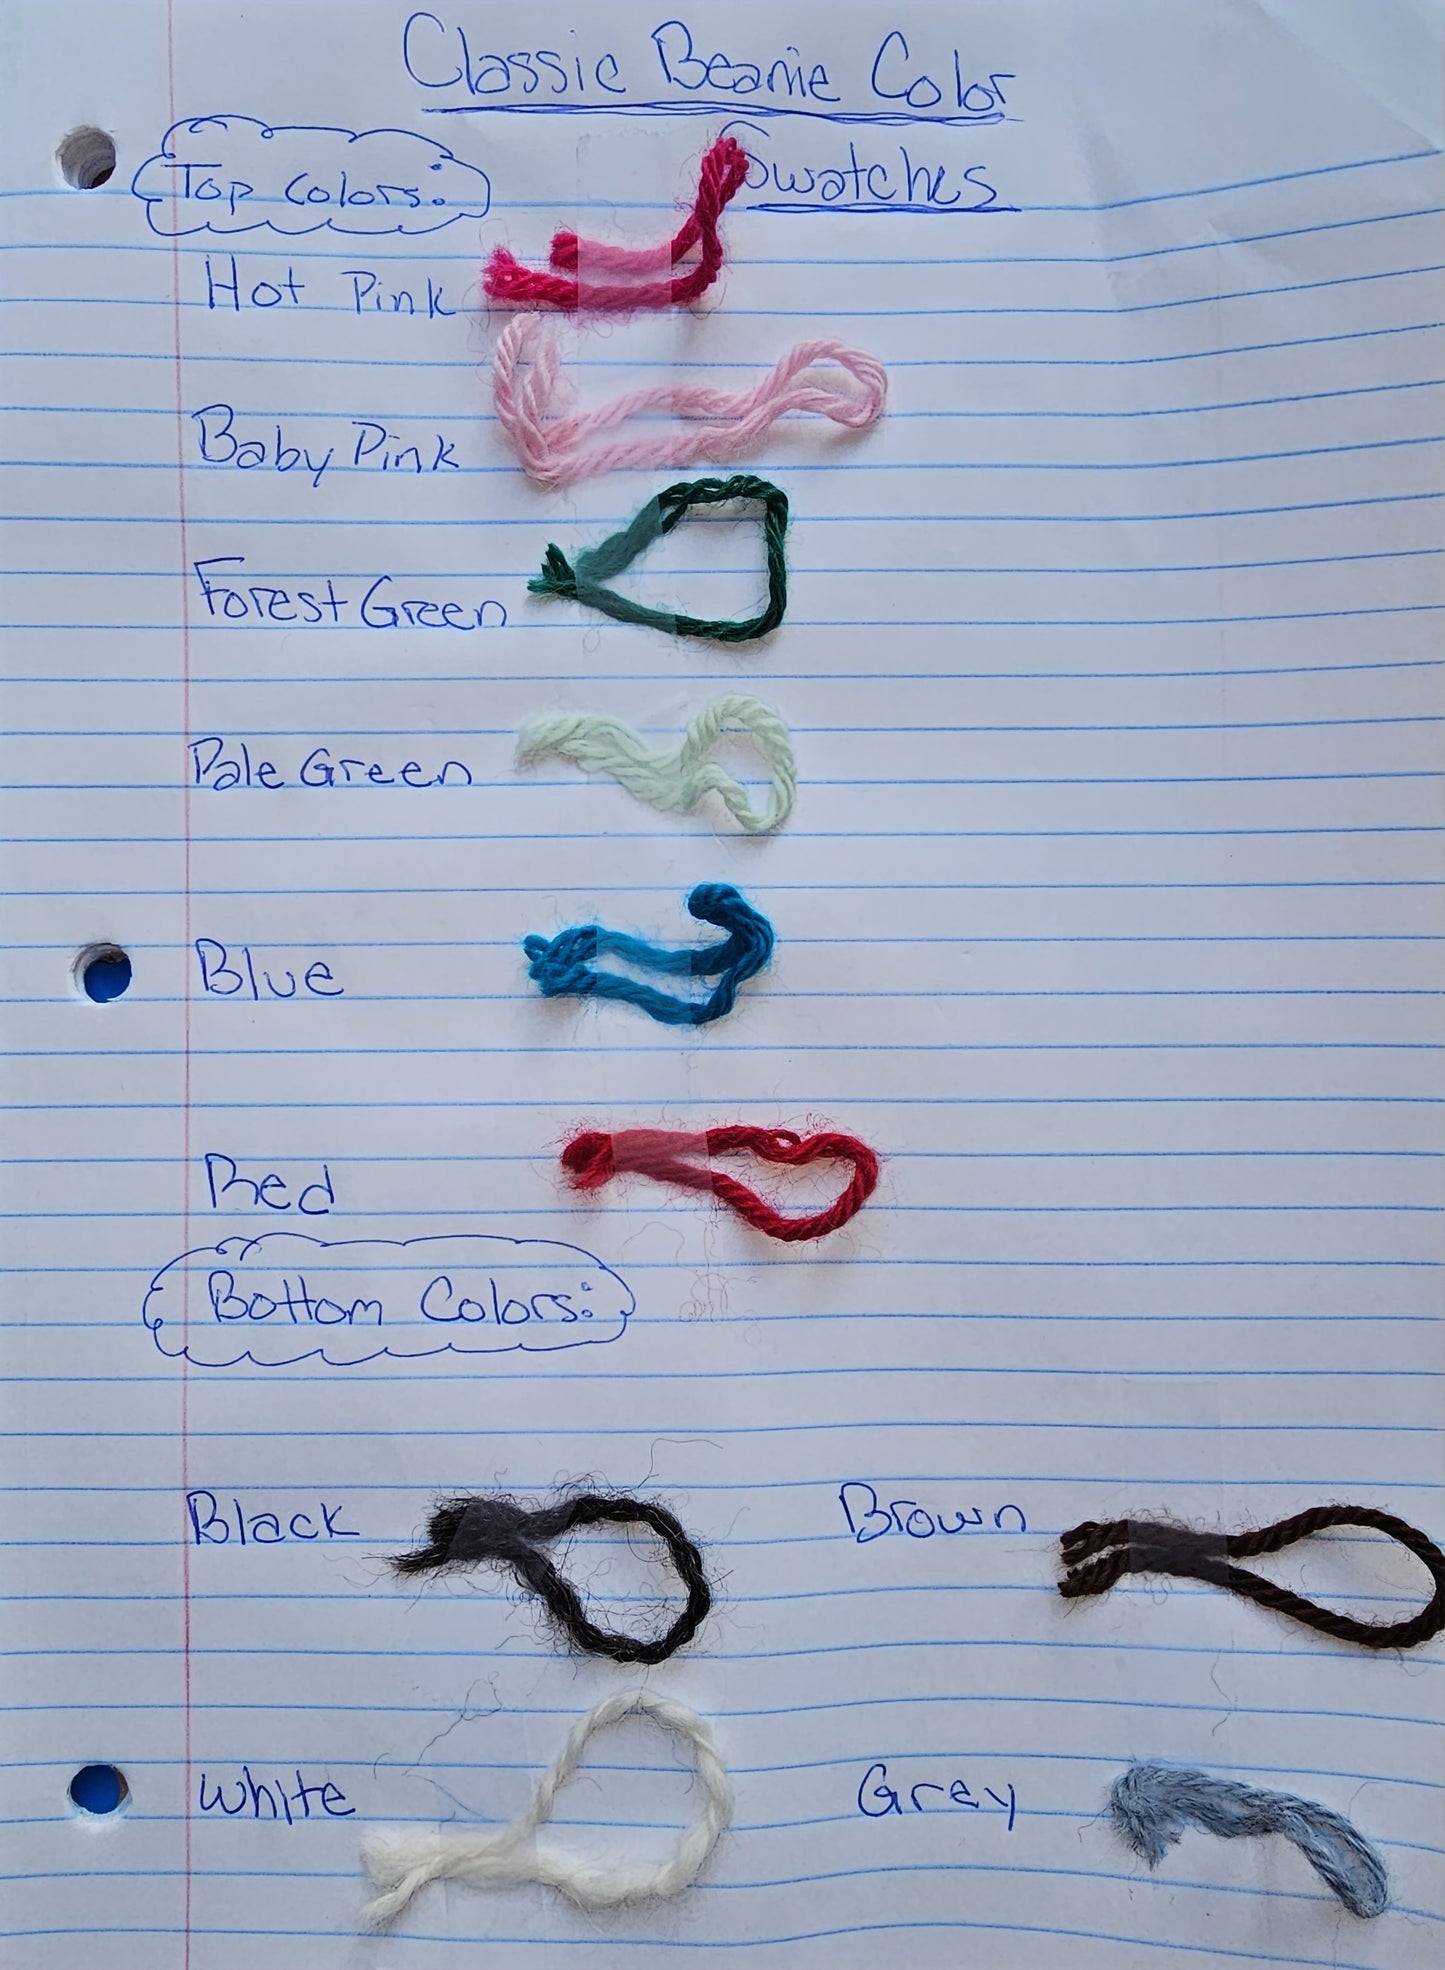 Classic Beanie Color
Swatches
Top Colors:
Hot Pink
Baby Pink
Forest Green
Pale Green
Blue
Red
Bottom Colors:
Black
Brown
White
Grey